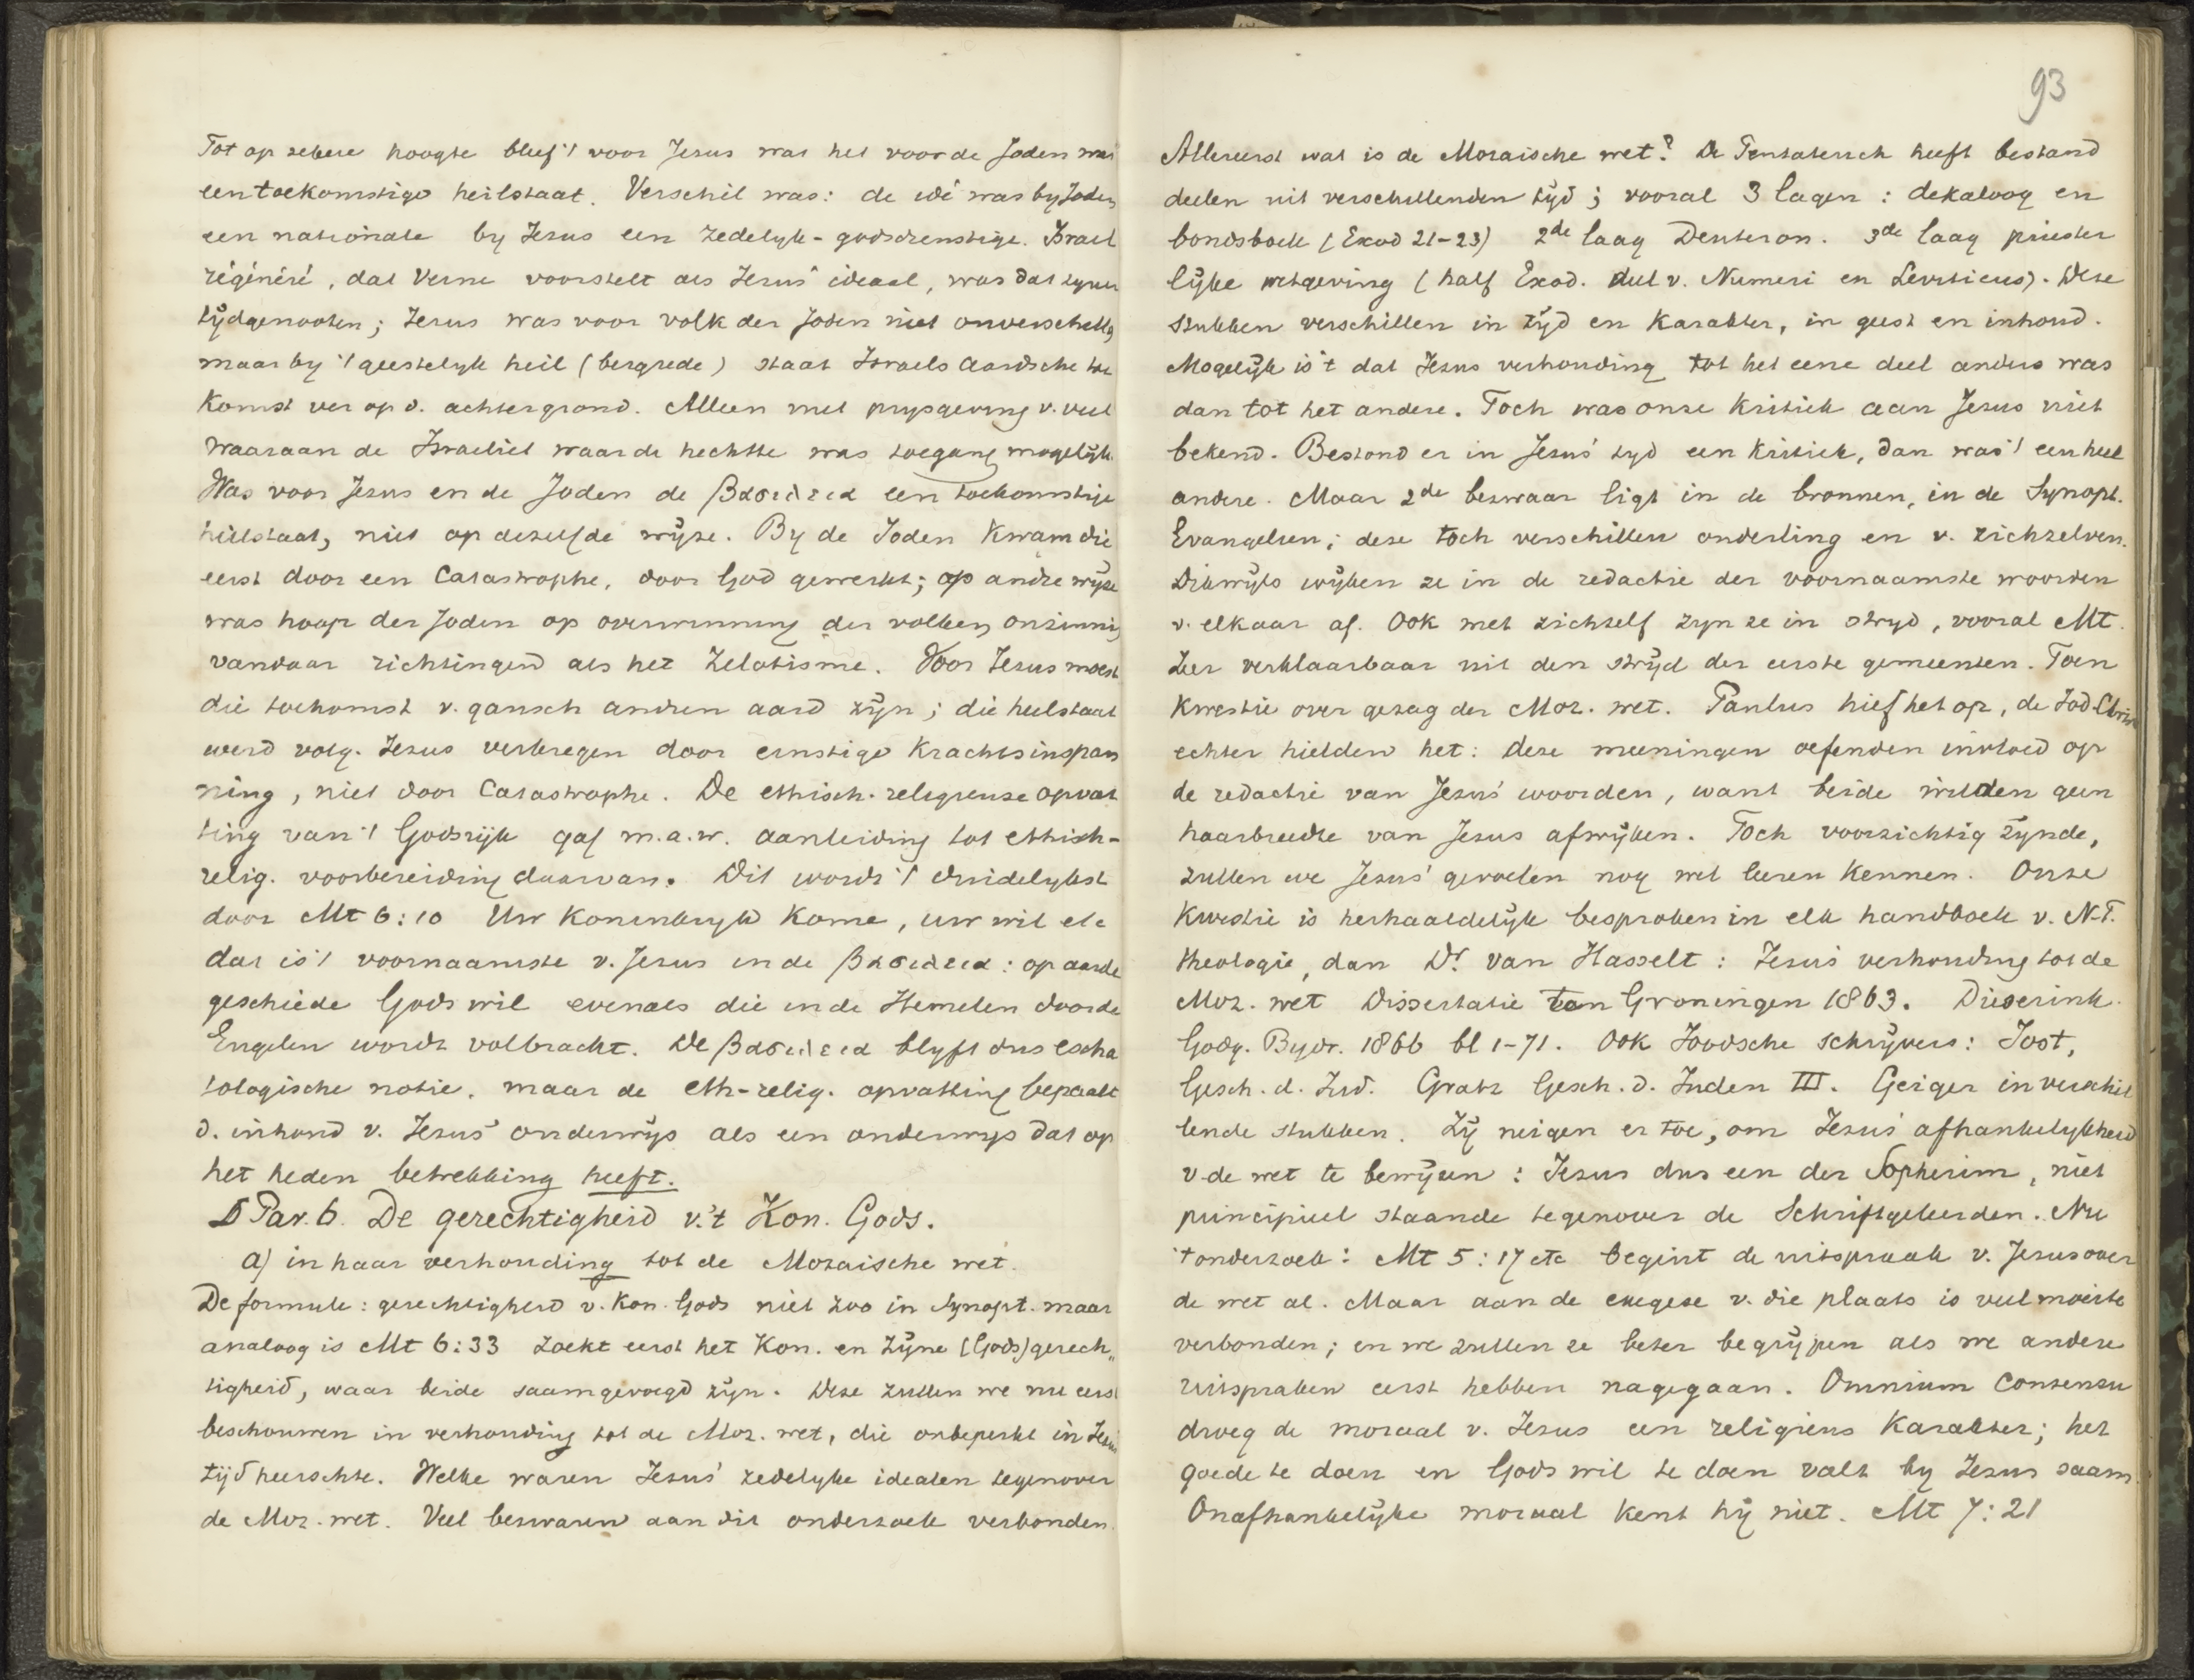 Tot op zekere hoogte bleef 't voor Jesus wat het voor de Joden was
een toekomstige heilstaat. Verschil was: de idé was by Joden
een nationale by Jesus een zedelyk-godsdienstige. Israel
régénéré, dat Verne voorstelt als Jesus' ideaal, was dat zyner
tÿdgenooten; Jesus was voor volk der Joden niet onverschillig
maar by 't geestelyk heil (bergrede) staat Israels aardsche toe
komst ver op d. achtergrond. Alleen met prysgeving v. veel
waaraan de Israeliet waarde hechtte was toegang mogelÿk.
Was voor Jesus en de Joden de βασιλεια een toekomstige
heilstaat, niet op dezelfde wÿze. By de Joden kwam die
eerst door een Catastrophe, door God gewerkt; op andre wÿze
was hoop der Joden op overwinning der volken onzinnig
vandaar richtingen als het Zelotisme. Voor Jesus moest
die toekomst v. gansch andren aard zÿn; die heilstaat
werd volg. Jesus verkregen door ernstige krachtsinspan
ning, niet door Catastrophe. De ethisch-religieuse opvat
ting van 't Godsrÿk gaf m.a.w. aanleiding tot ethisch-
relig. voorbereiding daarvan. Dit wordt 't duidelykst
door Mt 6:10 Uw Koninkryk kome, uw wil etc
dat is 't voornaamste v. Jesus in de βασιλεια: op aarde
geschiede Gods wil evenals die in de Hemelen door de
Engelen wordt volbracht. De βασιλεια blyft dus escha
tologische notie, maar de eth-relig. opvatting bepaalt
d. inhoud v. Jesus' onderwÿs als een onderwys dat op
het heden betrekking heeft.
§ Par. 6. De gerechtigheid v.'t Kon. Gods.
a) in haar verhouding tot de Mozaische wet.
De formule: gerechtigheid v. Kon. Gods niet zoo in Synopt. maar
analoog is Mt 6:33 Zoekt eerst het Kon. en Zÿne (Gods) gerech„
tigheid, waar beide saamgevoegd zÿn. Deze zullen we nu eerst
beschouwen in verhouding tot de Moz. wet, die onbeperkt in Jesus
tÿd heerschte. Welke waren Jesus' zedelyke idealen tegenover
de Moz. wet. Veel bezwaren aan dit onderzoek verbonden.
93
Allereerst wat is de Mozaische wet? De Pentateuch heeft bestand
deelen uit verschillenden tÿd; vooral 3 lagen: dekaloog en
bondsboek (Exod 21-23) 2de laag Deuteron. 3de laag priester
lÿke wetgeving (half Exod. deel v. Numeri en Leviticus). Deze
stukken verschillen in tÿd en karakter, in geest en inhoud.
Mogelÿk is 't dat Jesus verhouding tot het eene deel anders was
dan tot het andere. Toch was onze kritiek aan Jesus niet
bekend. Bestond er in Jesus' tyd een kritiek, dan was 't een heel
andere. Maar 2de bezwaar ligt in de bronnen, in de Synopt.
Evangelien; deze toch verschillen onderling en v. zichzelven.
Dikwÿls wÿken ze in de redactie der voornaamste woorden
v. elkaar af. Ook met zichzelf zyn ze in stryd, vooral Mt.
Zeer verklaarbaar uit den strÿd der eerste gemeenten. Toen
kwestie over gezag der Moz. wet. Paulus hief het op, de Jod-Christ
echter hielden het: deze meeningen oefenden invloed op
de redactie van Jesus' woorden, want beide wilden geen
haarbreedte van Jesus afwÿken. Toch voorzichtig zÿnde,
zullen we Jesus' gevoelen nog wel leeren kennen. Onze
kwestie is herhaaldelÿk besproken in elk handboek v. N.T.
theologie, dan Dr. van Hasselt: Jesus' verhouding tot de
Moz. wet Dissertatie Groningen 1863.
Godg. Bydr. 1866 bl 1-71. Ook Joodsche schrÿvers: Jost,
Gesch. d. Jud. Gratz Gesch. d. Juden III. Geiger in verschil
lende stukken. Zÿ neigen er toe, om Jesus' afhankelykheid
v. de wet te bewÿzen: Jesus dus een der Sopherim, niet
principieel staande tegenover de Schriftgeleerden. Nu
't onderzoek: Mt 5:17 etc begint de uitspraak v. Jesus over
de wet al. Maar aan de exegese v. die plaats is veel moeite
verbonden; en we zullen ze beter begrÿpen als we andere
uitspraken eerst hebben nagegaan. Omnium consensu
droeg de moraal v. Jesus een religieus karakter; het
goede te doen en Gods wil te doen valt by Jesus saam.
Onafhankelÿke moraal kent hÿ niet. Mt 7:21